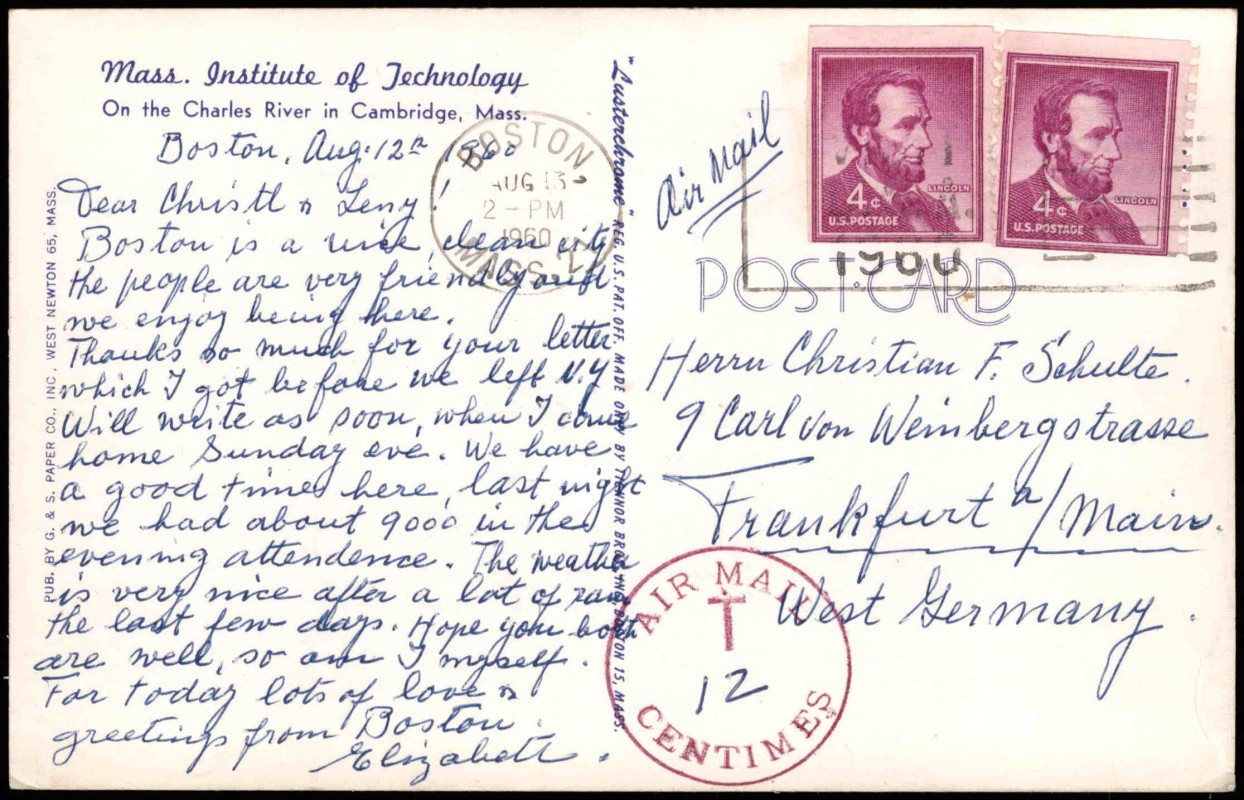 Mass. Institute of Technology
On the Charles River in Cambridge, Mass.
Boston, Aug. 12th 1960
Dear Christl & Leny!
Boston is a nice, clean city
the people are very friendly and
we enjoy being here.
Thanks so much for your letter
which I got before we left N.Y
Will write as soon, when I come
home Sunday eve. We have
a good time here, last night
we had about 9000 in the
evening attendence. The weather
is very nice after a lot of rain
the last few days. Hope you both
are well, so am I myself.
For today lots of love &
greetings from Boston.
Elizabeth.
PUB. BY G. & S. PAPER CO., INC., WEST NEWTON 65, MASS.
"Lusterchrome" REG. U.S. PAT. OFF. MADE ONLY BY TICHNOR BROS., INC., BOSTON 15, MASS.
BOSTON
AUG 13
2-PM
1960
MASS.
Air Mail
4¢
LINCOLN
U.S. POSTAGE
4¢
LINCOLN
U.S. POSTAGE
1960
POST CARD
Herrn Christian F. Schulte.
9 Carl von Weinbergstrasse
Frankfurt a/Main.
West Germany.
AIR MAIL
T
12
CENTIMES